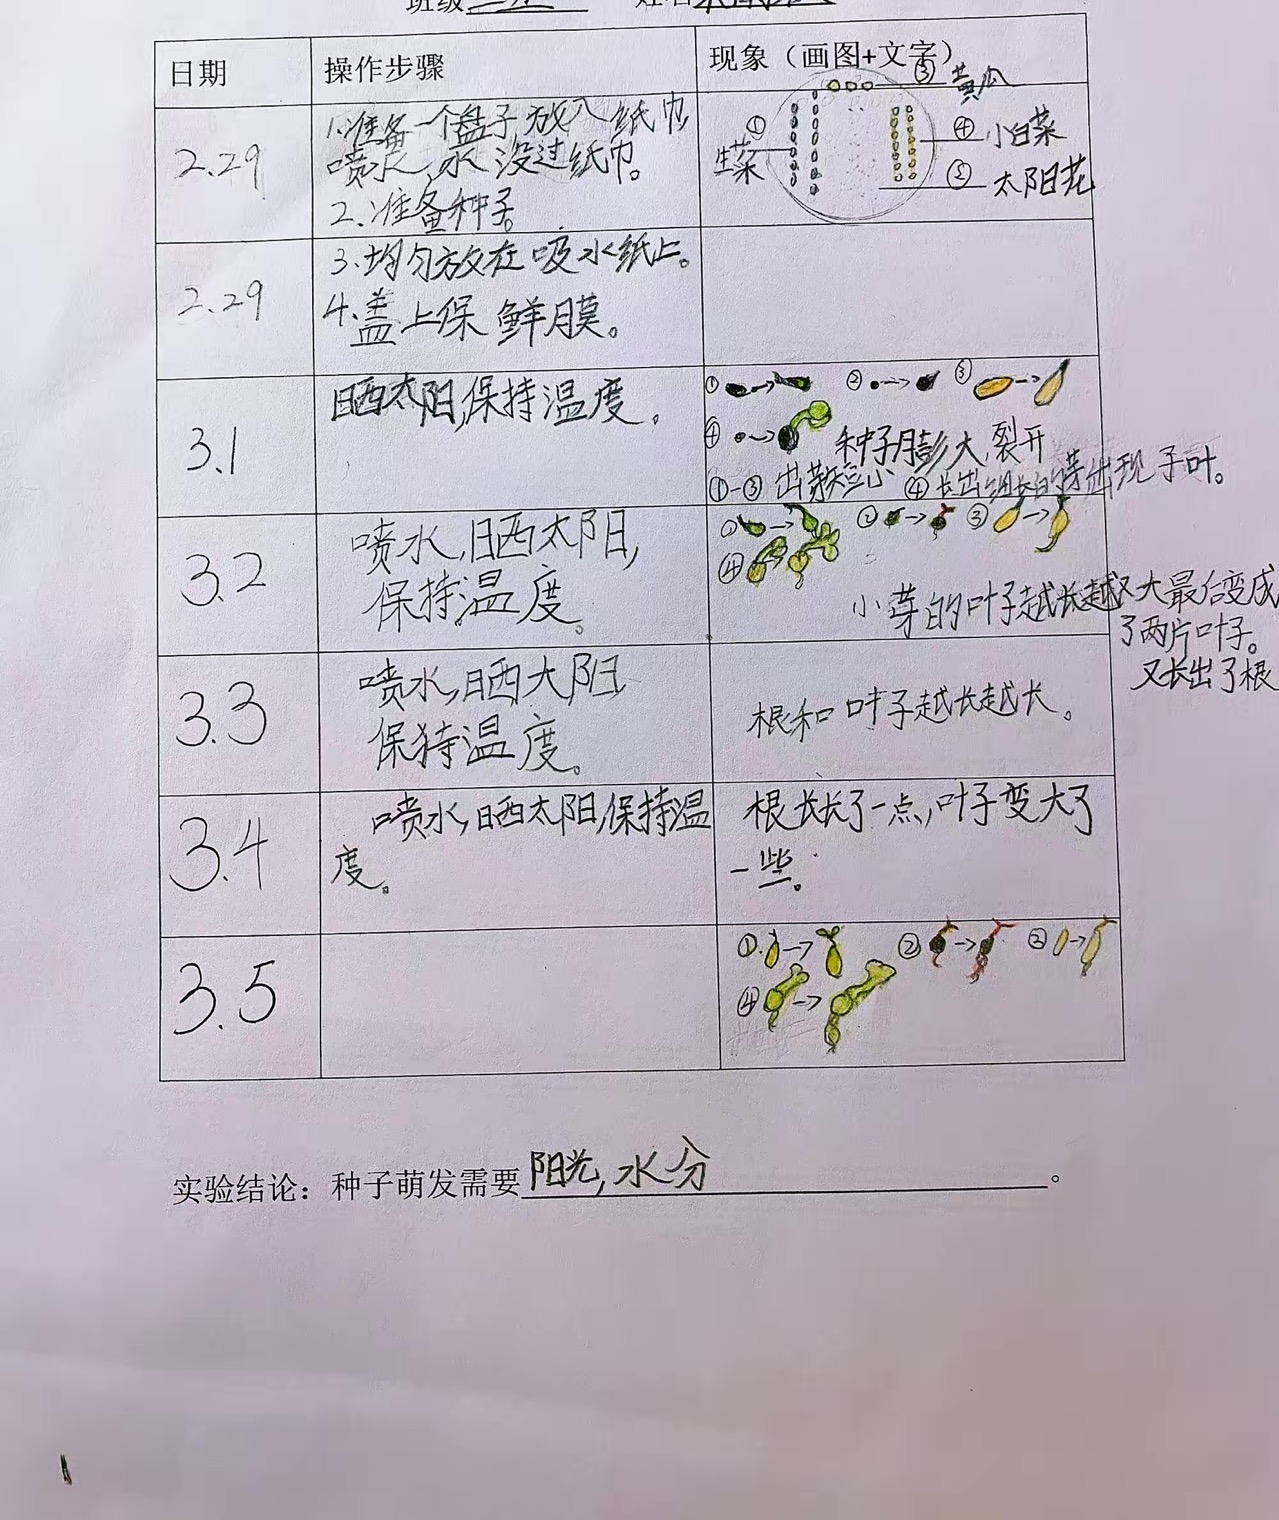 班级
姓名
日期 操作步骤 现象（画图+文字）
2.29
1.准备一个盘子,放入纸巾
喷水,水没过纸巾。
2.准备种子。
① 生菜
③ 黄瓜
④ 小白菜
⑤ 太阳花
2.29
3.均匀放在吸水纸上。
4.盖上保鲜膜。
3.1
晒太阳,保持温度。
① ② ③
④ 种子膨大,裂开
①-③ 出芽短小 ④长出细长的芽出现子叶。
3.2
喷水,晒太阳,
保持温度。
① ② ③
④
小芽的叶子越长越大最后变成
了两片叶子。
又长出了根
3.3
喷水,晒太阳
保持温度。
根和叶子越长越长。
3.4
喷水,晒太阳,保持温
度。
根长长了一点,叶子变大了
一些。
3.5
① ② ③
④
实验结论：种子萌发需要阳光,水分。